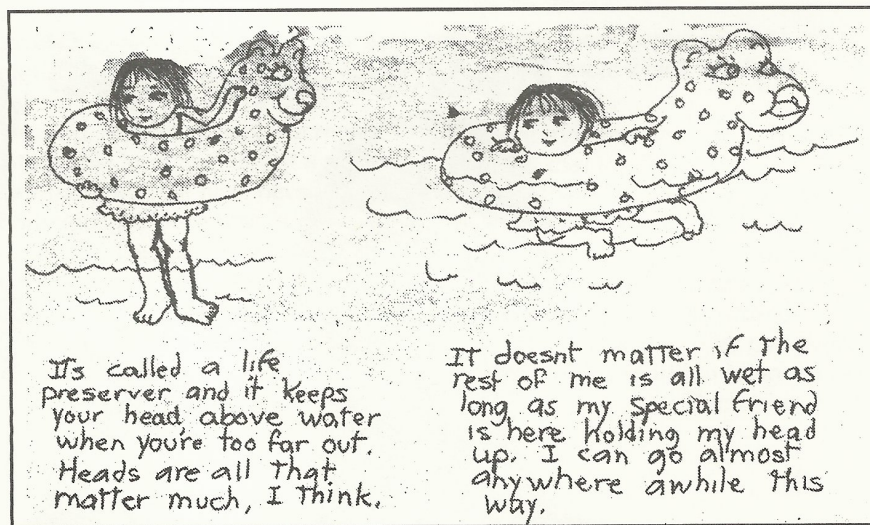 It's called a life
preserver and it keeps
your head above water
when you're too far out.
Heads are all that
matter much, I think.
It doesnt matter if the
rest of me is all wet as
long as my special friend
is here holding my head
up. I can go almost
anywhere awhile this
way.